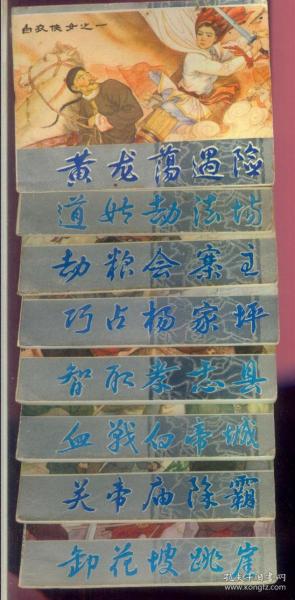 白衣侠女之一
黄龙荡遇险
道姑劫法场
劫粮会寨主
巧占杨家坪
智取孝感县
血战白帝城
关帝庙除霸
卸花坡跳崖